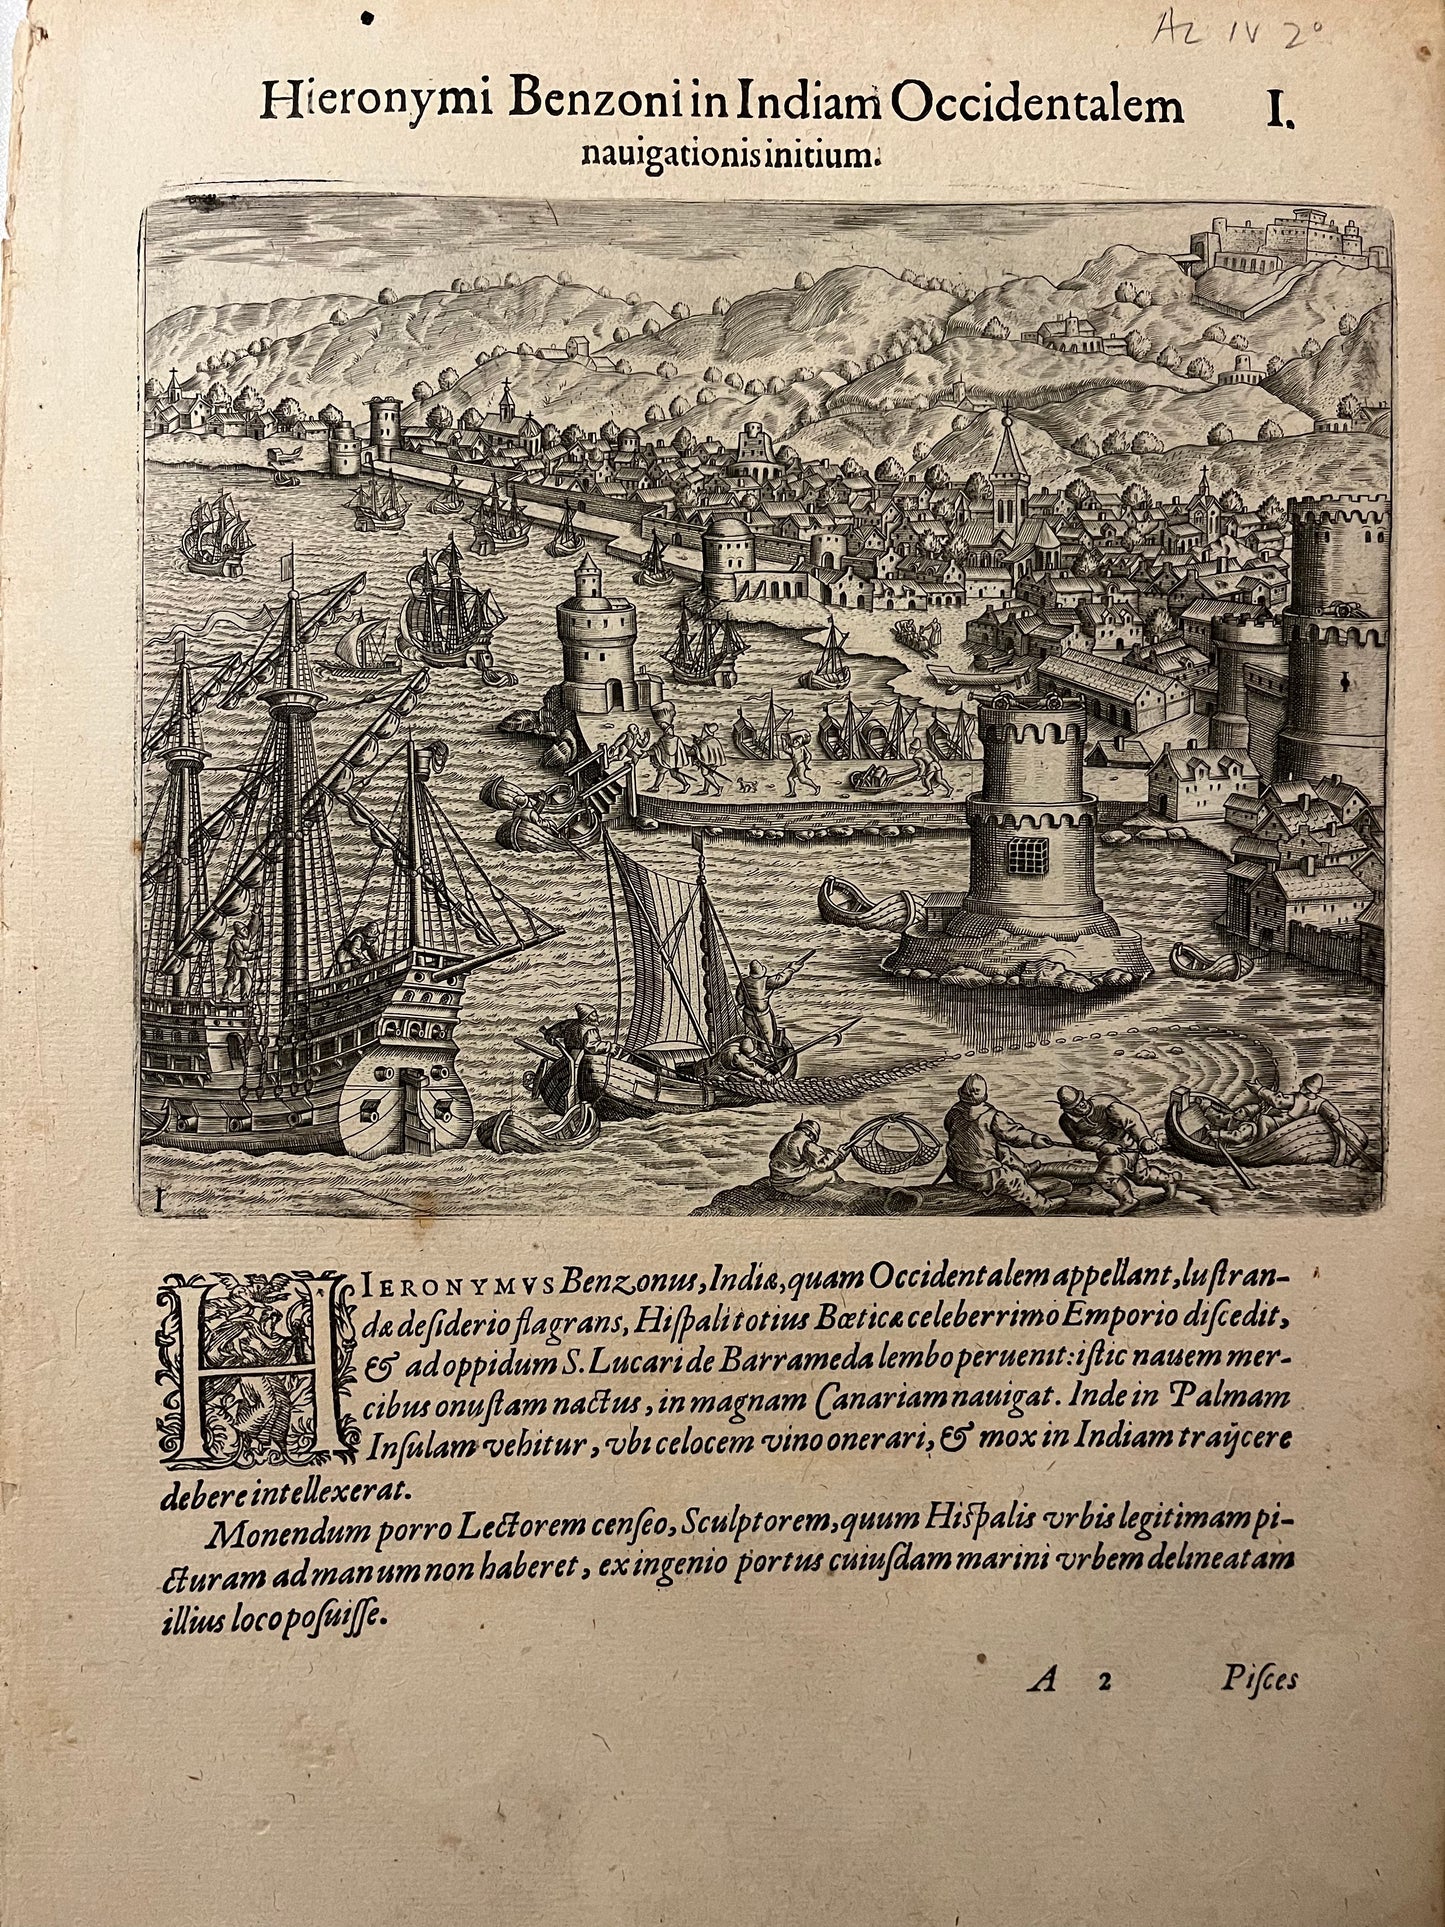 Az IV 2°
Hieronymi Benzoni in Indiam Occidentalem I.
nauigationis initium.
I
HIERONYMVS Benzonus, Indiæ, quam Occidentalem appellant, luſtran-
dæ deſiderio flagrans, Hiſpali totius Bœticæ celeberrimo Emporio diſcedit,
& ad oppidum S. Lucari de Barrameda lembo peruenit: iſtic nauem mer-
cibus onuſtam nactus, in magnam Canariam nauigat. Inde in Palmam
Inſulam vehitur, vbi celocem vino onerari, & mox in Indiam traijcere
debere intellexerat.
Monendum porro Lectorem cenſeo, Sculptorem, quum Hiſpalis vrbis legitimam pi-
cturam ad manum non haberet, ex ingenio portus cuiuſdam marini vrbem delineatam
illius loco poſuiſſe.
A 2 Piſces